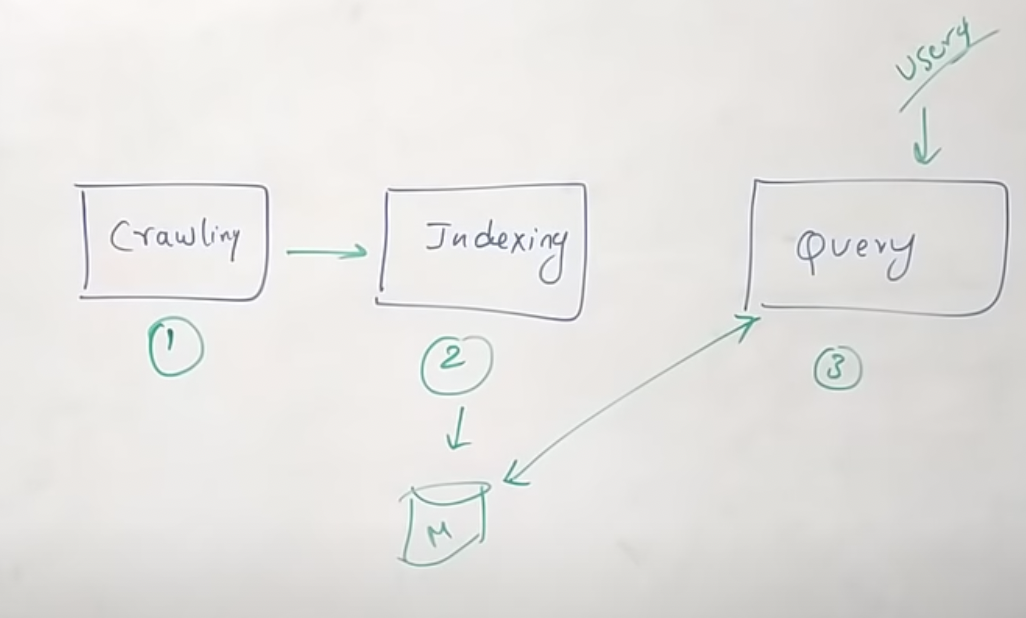 Users
Crawling
Indexing
Query
1
2
3
M